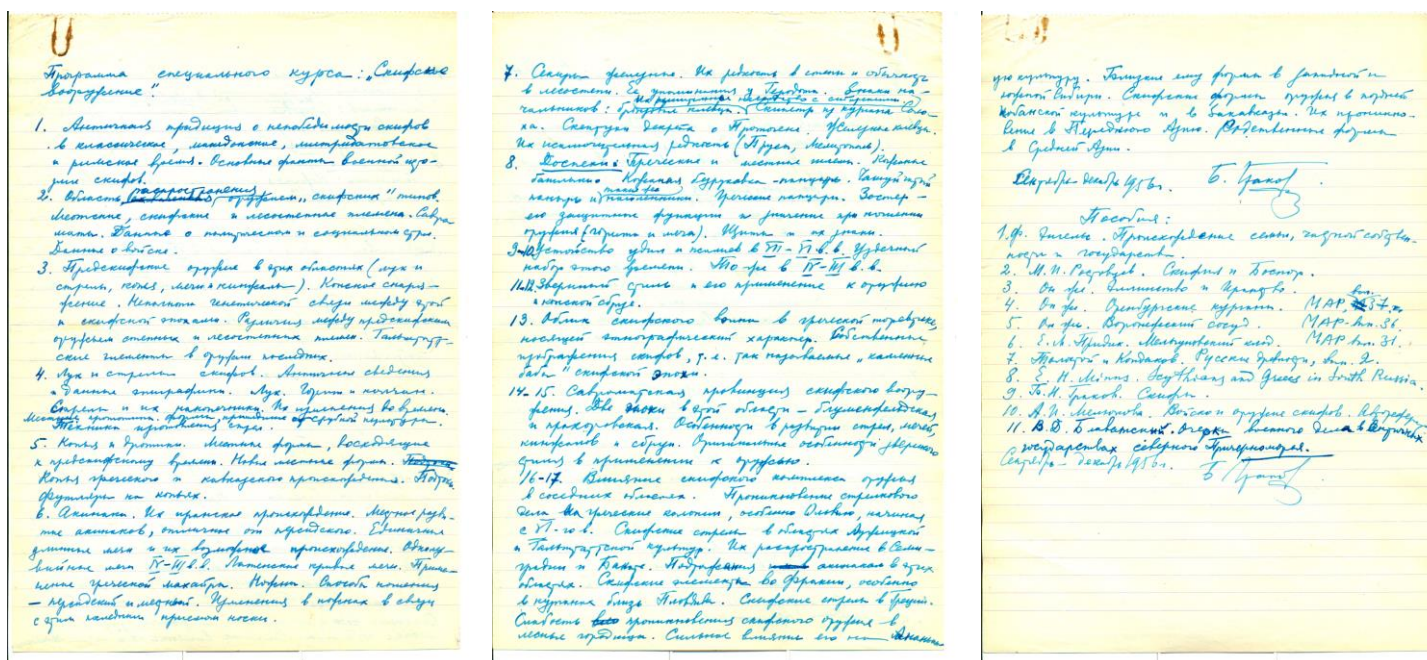 Программа специального курса: „Скифское
вооружение".
1. Античная традиция о непобедимости скифов
в классическое, македонское, митридатовское
и римское время. Основные факты военной исто-
рии скифов.
2. Область распространения оружия „скифских" типов.
Меотские, скифские и лесостепные племена. Савро-
маты. Данные о политическом и социальном строе.
Данные о войске.
3. Предскифское оружие в этих областях (лук и
стрелы, копья, мечи и кинжалы). Конское снаря-
жение. Неполнота генетической связи между этой
и скифской эпохами. Различия между предскифским
оружием степных и лесостепных племен. Гальштатт-
ские элементы в оружии последних.
4. Лук и стрелы скифов. Античные сведения
и данные эпиграфики. Лук. Горит и колчан.
Стрелы и их наконечники. Их изменения во времени.
Техника
5. Копья и дротики. Местные формы, восходящие
к предскифскому времени. Новые местные формы.
Копья греческого и кавказского происхождения.
футляры на копьях.
6. Акинаки. Их иранское происхождение. Местное разви-
тие акинаков, отличие от персидского. Единичные
длинные мечи и их возможное происхождение. Одноле-
звийные мечи IV–III в.в. Латенские кривые мечи. Приме-
нение греческой махайры. Ножны. Способы ношения
– персидский и местный. Изменения в ножнах в связи
с этим последним приемом носки.
7. Секиры железные. Их редкость в степи и обычность
в лесостепи. Ее упоминания у Геродота. Знаки на-
чальников: Скипетр из кургана Соло-
ха. Скептухи декрета о Протогене. Железные клевцы.
Их исключительная редкость (Пруссы, Мелитополь).
8. Доспехи: Греческие и местные шлемы. Кожаные
башлыки. Кожаная безрукавка-панцырь. Чешуйчатый
панцырь и такие же наколенники. Греческие панцыри. Зостер –
его защитные функции и значение при ношении
оружия (горита и меча). Щиты и их знаки.
9-10. Устойство удил и псалиев в VII–VI в.в. Уздечный
набор этого времени. То же в IV–III в.в.
11-12. Звериный стиль и его применение к оружию
и конской сбруе.
13. Облик скифского воина в греческой торевтике,
носящей этнографический характер. Собственные
изображения скифов, т.е. так называемые „каменные
бабы" скифской эпохи.
14-15. Савроматская провинция скифского воору-
жения. Две эпохи в этой области – блюменфельдская
и прохоровская. Особенности в развитии стрел, мечей,
кинжалов и сбруи. Оригинальные особенности звериного
стиля в применении к оружию.
16-17. Влияние скифского комплекса оружия
в соседних областях. Проникновение стрелкового
дела в греческие колонии, особенно Ольвию, начиная
с VI-го в. Скифские стрелы в областях Лужицкой
и Гальштаттской культур. Их распространение в Семи-
градии и Банате. Подражания акинакам в этих
областях. Скифские элементы во Фракии, особенно
в курганах близ Пловдива. Скифские стрелы в Греции.
Слабость проникновения скифского оружия в
лесные городища. Сильное влияние его на Ананьин-
скую культуру. Близкие ему формы в западной и
южной Сибири. Скифские формы оружия в поздней
Кобанской культуре и в Закавказьи. Их проникно-
вение в Переднюю Азию. Родственные формы
в Средней Азии.
Сентябрь-декабрь 1956г. Б. Граков.
Пособия:
1. Ф. Энгельс. Происхождение семьи, частной собствен-
ности и государства.
2. М. И. Ростовцев. Скифия и Боспор.
3. Он же. Эллинство и Иранство.
4. Он же. Оренбургские курганы. МАР, вып. 37.
5. Он же. Воронежский сосуд. МАР-вып. 36.
6. Е. М. Придик. Мельгуновский клад. МАР вып. 31.
7. Толстой и Кондаков. Русские древности, вып. 2.
8. E. H. Minns. Scythians and Greeks in South Russia.
9. Б. Н. Граков. Скифы.
10. А. И. Мелюкова. Войско и оружие скифов. Автореферат
11. В. Д. Блаватский. Очерки военного дела в античных
государствах северного Причерноморья.
Сентябрь – декабрь 1956г.
Б Граков